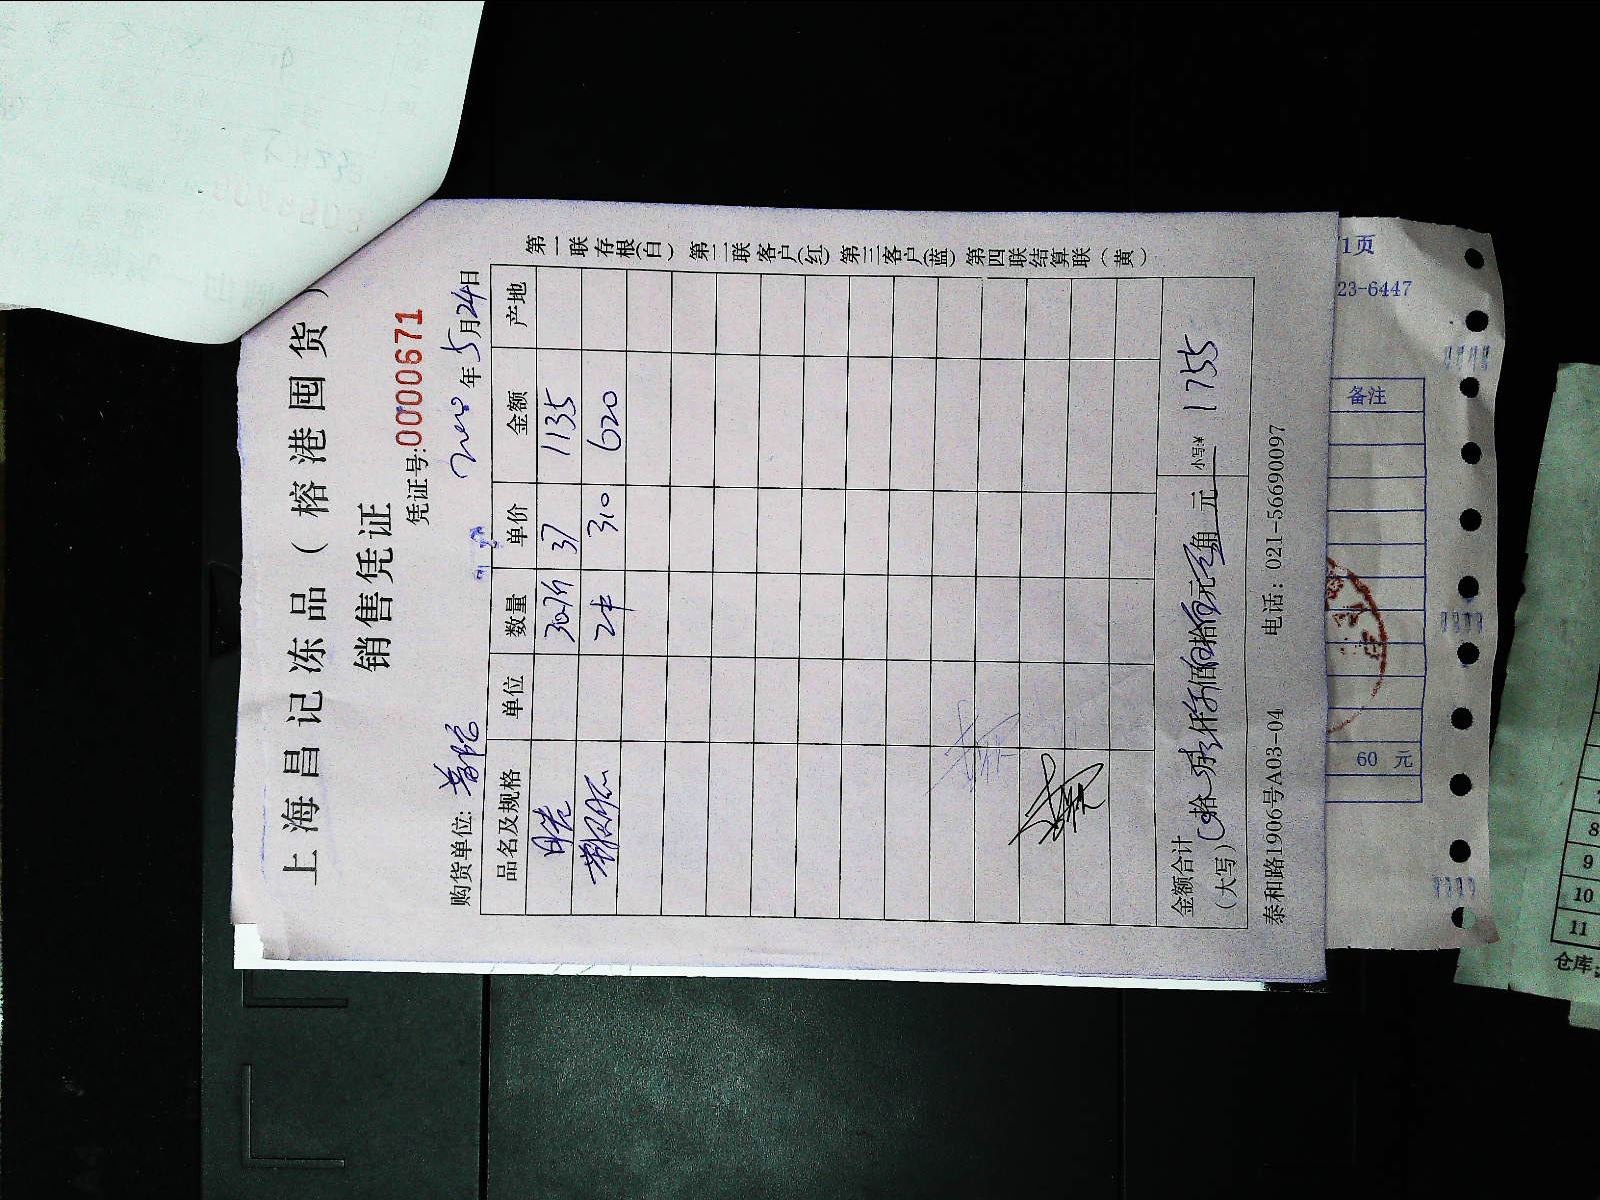 上海昌记冻品（榕港囤货）
销售凭证
凭证号:0000671
购货单位:
年5月24日
品名及规格 单位 数量 单价 金额 产地
37 1135
2件 310 620
金额合计（大写） 拾 仟 佰 拾 元 角 元 小写:¥ 1755
泰和路1906号A03-04 电话：021-56690097
第一联存根(白) 第二联客户(红) 第三客户(蓝) 第四联结算联（黄）
1页
23-6447
备注
60 元
8
9
10
11
仓库: